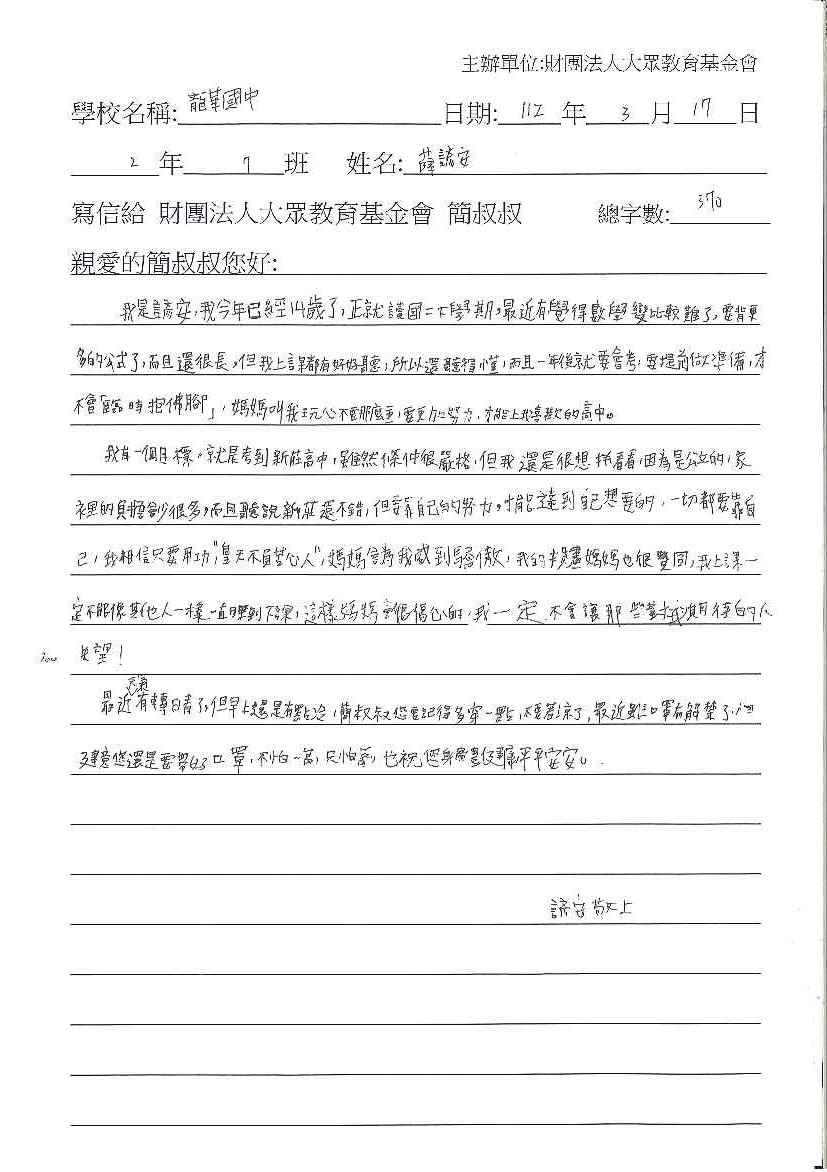 主辦單位:財團法人大眾教育基金會
學校名稱: 龍華國中 日期: 112 年 3 月 17 日
2 年 7 班 姓名: 薛諳安
寫信給 財團法人大眾教育基金會 簡叔叔 總字數: 370
親愛的簡叔叔您好:
我是諳安,我今年已經14歲了,正就讀國二下學期,最近有覺得數學變比較難了,要背更
多的公式了,而且還很長,但我上課都有好好聽,所以還聽得懂,而且一年後就要會考,要提前做準備,才
不會「臨時抱佛腳」,媽媽叫我玩心不要那麼重,要更加努力,才能上我喜歡的高中。
我有一個目標,就是考到新莊高中,雖然條件很嚴格,但我還是很想拚看看,因為是公立的,家
裡的負擔會少很多,而且聽說新莊還不錯,但要靠自己的努力,才能達到自己想要的,一切都要靠自
己,我相信只要用功,"皇天不負苦心人",媽媽會為我感到驕傲,我的媽媽也很贊同,我上課一
定不能像其他人一樣一直睡到下課,這樣媽媽會很傷心的,我一定不會讓那些對我期待的人
300 失望!
最近天氣有轉晴了,但早上還是有點冷,簡叔叔您要記得多穿一點,不要著涼了,最近雖然口罩有解禁了,
建議您還是要帶好口罩,不怕一萬,只怕萬一,也祝您身體健康平平安安。
諳安 敬上